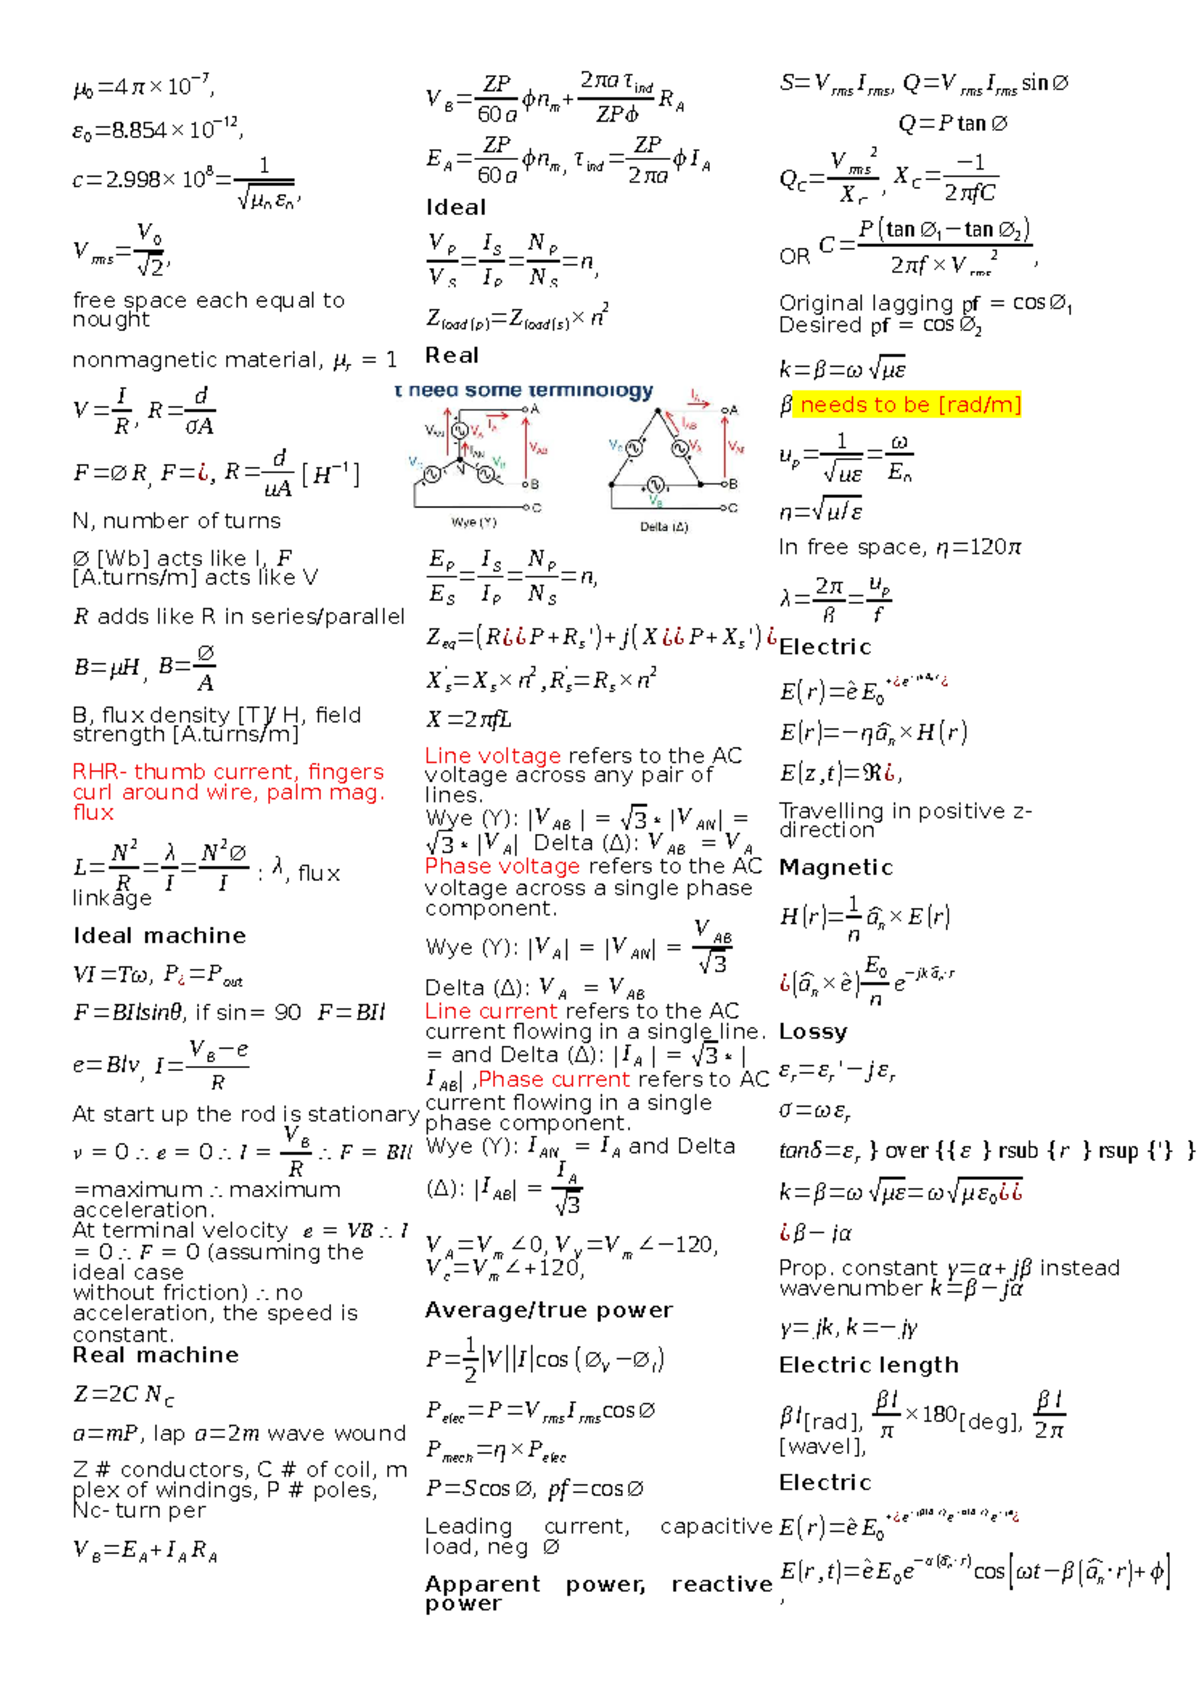 μ₀=4π×10⁻⁷,
ε₀=8.854×10⁻¹²,
c=2.998×10⁸=1/√(μ₀ε₀),
V_rms=V₀/√2,
free space each equal to
nought
nonmagnetic material, μ_r = 1
V=I/R, R=d/σA
F=∅R, F=¿, R=d/uA [H⁻¹]
N, number of turns
∅ [Wb] acts like I, F
[A.turns/m] acts like V
R adds like R in series/parallel
B=μH, B=∅/A
B, flux density [T]/ H, field
strength [A.turns/m]
RHR- thumb current, fingers
curl around wire, palm mag.
flux
L=N²/R=λ/I=N²∅/I : λ, flux
linkage
Ideal machine
VI=Tω, P¿=P_out
F=BIlsinθ, if sin= 90 F=BIl
e=Blv, I=(V_B−e)/R
At start up the rod is stationary
v = 0 ∴ e = 0 ∴ I = V_B/R ∴ F = BIl
=maximum ∴ maximum
acceleration.
At terminal velocity e = VB ∴ I
= 0 ∴ F = 0 (assuming the
ideal case
without friction) ∴ no
acceleration, the speed is
constant.
Real machine
Z=2C N_C
a=mP, lap a=2m wave wound
Z # conductors, C # of coil, m
plex of windings, P # poles,
Nc- turn per
V_B=E_A+I_A R_A
V_B=ZP/60a ϕn_m+2πa τ_ind/ZPϕ R_A
E_A=ZP/60a ϕn_m, τ_ind=ZP/2πa ϕ I_A
Ideal
V_P/V_S=I_S/I_P=N_P/N_S=n,
Z_load(p)=Z_load(s)×n²
Real
t need some terminology
I_A A V_AN V_A I_AN V_AB N V_B B C
Wye (Y)
I_A A I_AB V_A V_AB B V_B C
Delta (Δ)
E_P/E_S=I_S/I_P=N_P/N_S=n,
Z_eq=(R¿¿P+R_s')+j(X¿¿P+X_s')¿
X'_s=X_s×n²,R'_s=R_s×n²
X=2πfL
Line voltage refers to the AC
voltage across any pair of
lines.
Wye (Y): |V_AB| = √3 * |V_AN| =
√3 * |V_A| Delta (Δ): V_AB = V_A
Phase voltage refers to the AC
voltage across a single phase
component.
Wye (Y): |V_A| = |V_AN| = V_AB/√3
Delta (Δ): V_A = V_AB
Line current refers to the AC
current flowing in a single line.
= and Delta (Δ): |I_A| = √3 * |
I_AB| ,Phase current refers to AC
current flowing in a single
phase component.
Wye (Y): I_AN = I_A and Delta
(Δ): |I_AB| = I_A/√3
V_A=V_m∠0, V_V=V_m∠−120,
V_c=V_m∠+120,
Average/true power
P=1/2|V||I|cos(∅_V−∅_I)
P_elec=P=V_rms I_rms cos∅
P_mech=η×P_elec
P=S cos∅, pf=cos∅
Leading current, capacitive
load, neg ∅
Apparent power, reactive
power
S=V_rms I_rms, Q=V_rms I_rms sin∅
Q=P tan∅
Q_C=V_rms²/X_C, X_C=−1/2πfC
OR C=P(tan∅₁−tan∅₂)/2πf×V_rms²,
Original lagging pf = cos∅₁
Desired pf = cos∅₂
k=β=ω√με
β needs to be [rad/m]
u_p=1/√uε=ω/E₀
η=√u/ε
In free space, η=120π
λ=2π/β=u_p/f
Electric
E(r)=êE₀
E(r)=−ηâ_n×H(r)
E(z,t)=ℜ¿,
Travelling in positive z-
direction
Magnetic
H(r)=1/η â_n×E(r)
¿(â_n×ê)E₀/η e^(−jkâ_n·r)
Lossy
ε_r=ε_r'−jε_r
σ=ωε_r
tanδ=ε_r } over {{ε } rsub {r } rsup {'} }
k=β=ω√με=ω√με₀¿¿
¿β−jα
Prop. constant γ=α+jβ instead
wavenumber k=β−jα
γ=jk, k=−jγ
Electric length
βl[rad], βl/π×180[deg], βl/2π
[wavel],
Electric
E(r)=êE₀
E(r,t)=êE₀e^(−α(â_n·r))cos[ωt−β(â_n·r)+ϕ]
,